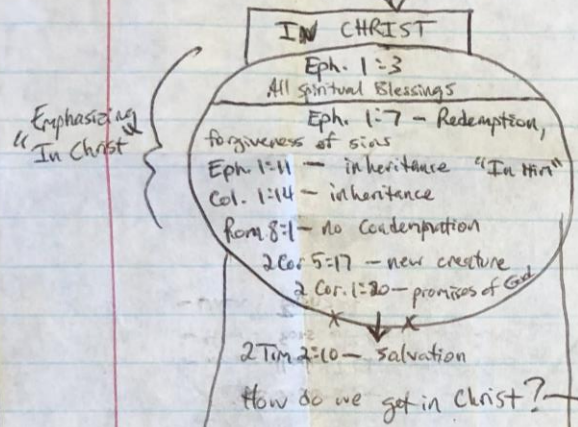 IN CHRIST
Eph. 1:3
All spiritual Blessings
Eph. 1:7 – Redemption,
forgiveness of sins
Eph 1:11 – inheritance "In Him"
Col. 1:14 – inheritance
Rom 8:1 – no condemnation
2 Cor 5:17 – new creature
2 Cor. 1:20 – promises of God
2 Tim 2:10 – salvation
How do we get in Christ?
Emphasizing
"In Christ"